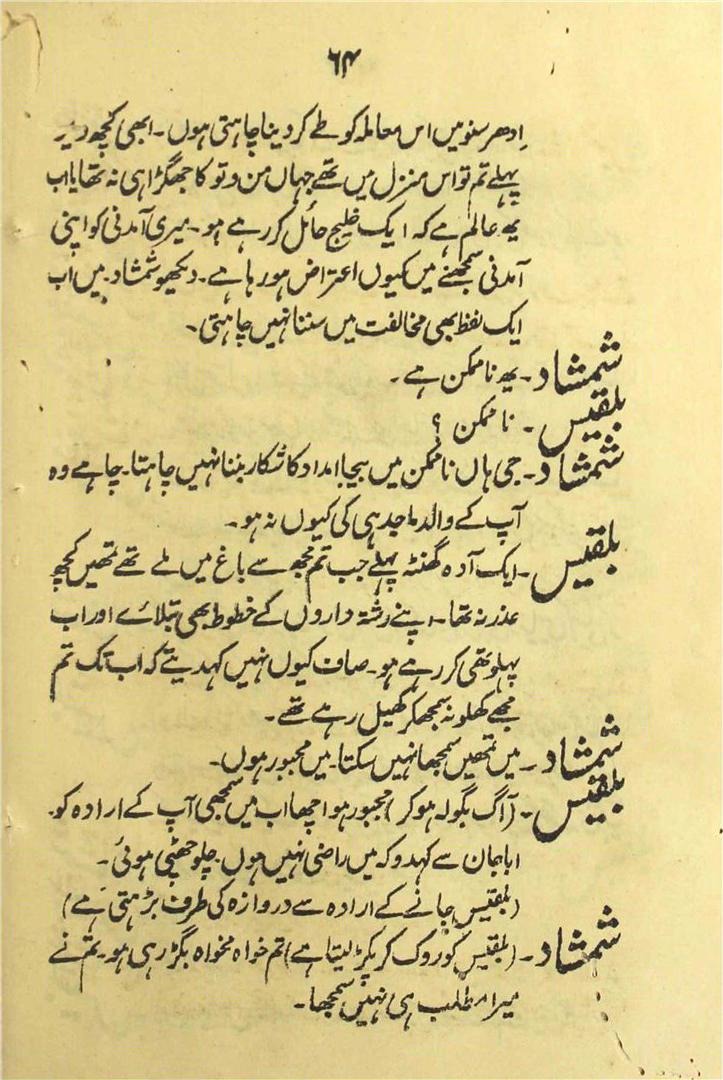 ۶۴
اِدھر سنو میں اس معاملہ کو طے کر دینا چاہتی ہوں۔ ابھی کچھ دیر
پہلے تم تو اس منزل میں تھے جہاں من و تو کا جھگڑا ہی نہ تھا یا اب
یہ عالم ہے کہ ایک خلیج حائل کر رہے ہو۔ میری آمدنی کو اپنی
آمدنی سمجھنے میں کیوں اعتراض ہو رہا ہے۔ دیکھو شمشاد۔ میں اب
ایک لفظ بھی مخالفت میں سننا نہیں چاہتی۔
شمشاد۔ یہ ناممکن ہے۔
بلقیس۔ ناممکن ؟
شمشاد۔ جی ہاں ناممکن میں بیجا امداد کا شکار بننا نہیں چاہتا۔ چاہے وہ
آپ کے والد ماجد ہی کی کیوں نہ ہو۔
بلقیس۔ ایک آدہ گھنٹہ پہلے جب تم مجھ سے باغ میں ملے تھے تمھیں کچھ
عذر نہ تھا۔ اپنے رشتہ داروں کے خطوط بھی بتلائے اور اب
پہلو تھی کر رہے ہو۔ صاف کیوں نہیں کہدیتے کہ اب تک تم
مجھے کھلونہ سمجھکر کھیل رہے تھے۔
شمشاد۔ میں تمھیں سمجھا نہیں سکتا۔ میں مجبور ہوں۔
بلقیس۔ (آگ بگولہ ہو کر) مجبور ہو اچھا اب میں سمجھی آپ کے ارادہ کو۔
ابا جان سے کہدو کہ میں راضی نہیں ہوں۔ چلو چھٹی ہوئی۔
(بلقیس جانے کے ارادہ سے دروازہ کی طرف بڑھتی ہے)
شمشاد۔ (بلقیس کو روک کر پکڑ لیتا ہے) تم خواہ مخواہ بگڑ رہی ہو۔ تم نے
میرا مطلب ہی نہیں سمجھا۔